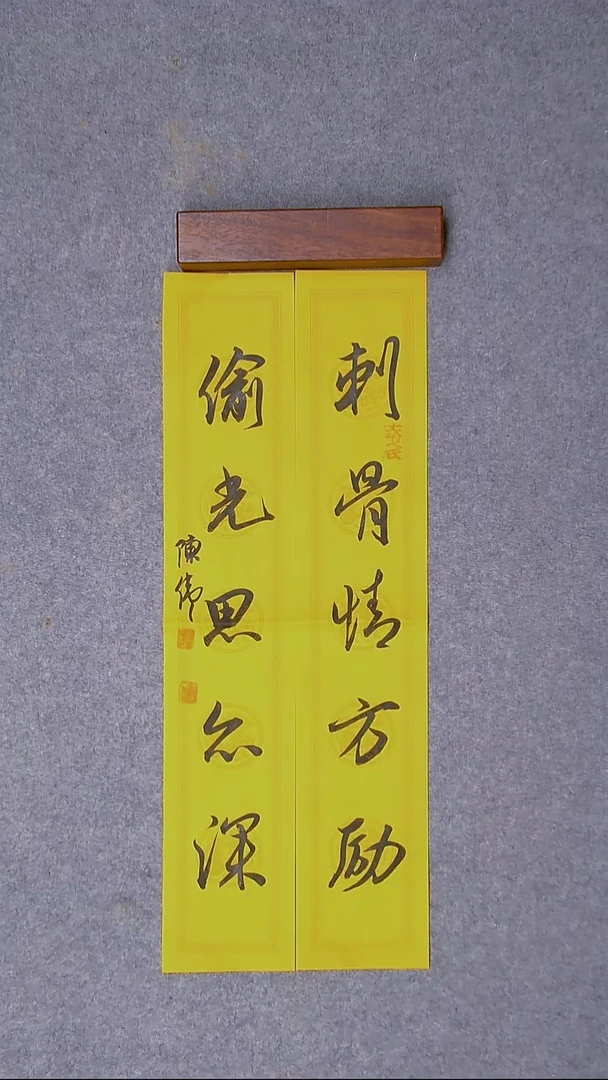 刺骨情方励
偷光思益深
陳偉